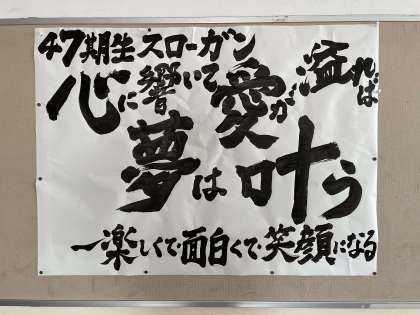 47期生スローガン
心に響いて愛が溢れば
夢は叶う
一楽しくて・面白くて・笑顔になる